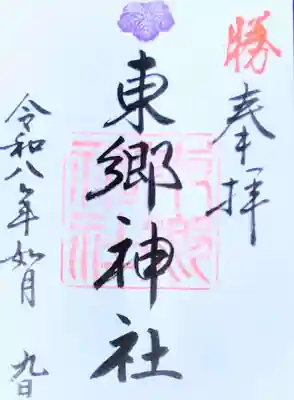 勝
奉拝
東郷神社
令和八年如月
九日